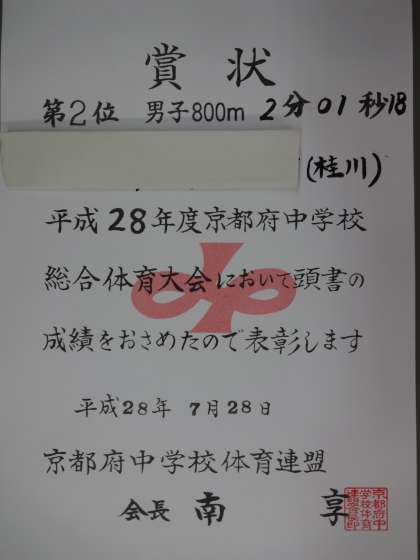 賞状
第2位 男子800m 2分01秒18
(桂川)
平成28年度京都府中学校
総合体育大会において頭書の
成績をおさめたので表彰します
平成28年 7月28日
京都府中学校体育連盟
会長 南 享
京都府中
学校体育
連盟会長印